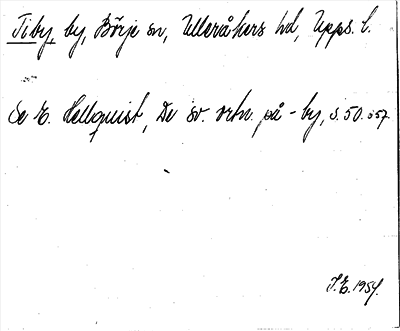 Tiby, by, Börje sn, Ulleråkers hd, Upps. l.
Se E. Hellquist, De sv. ortn. på -by, s. 50. 557.
J.E. 1954.